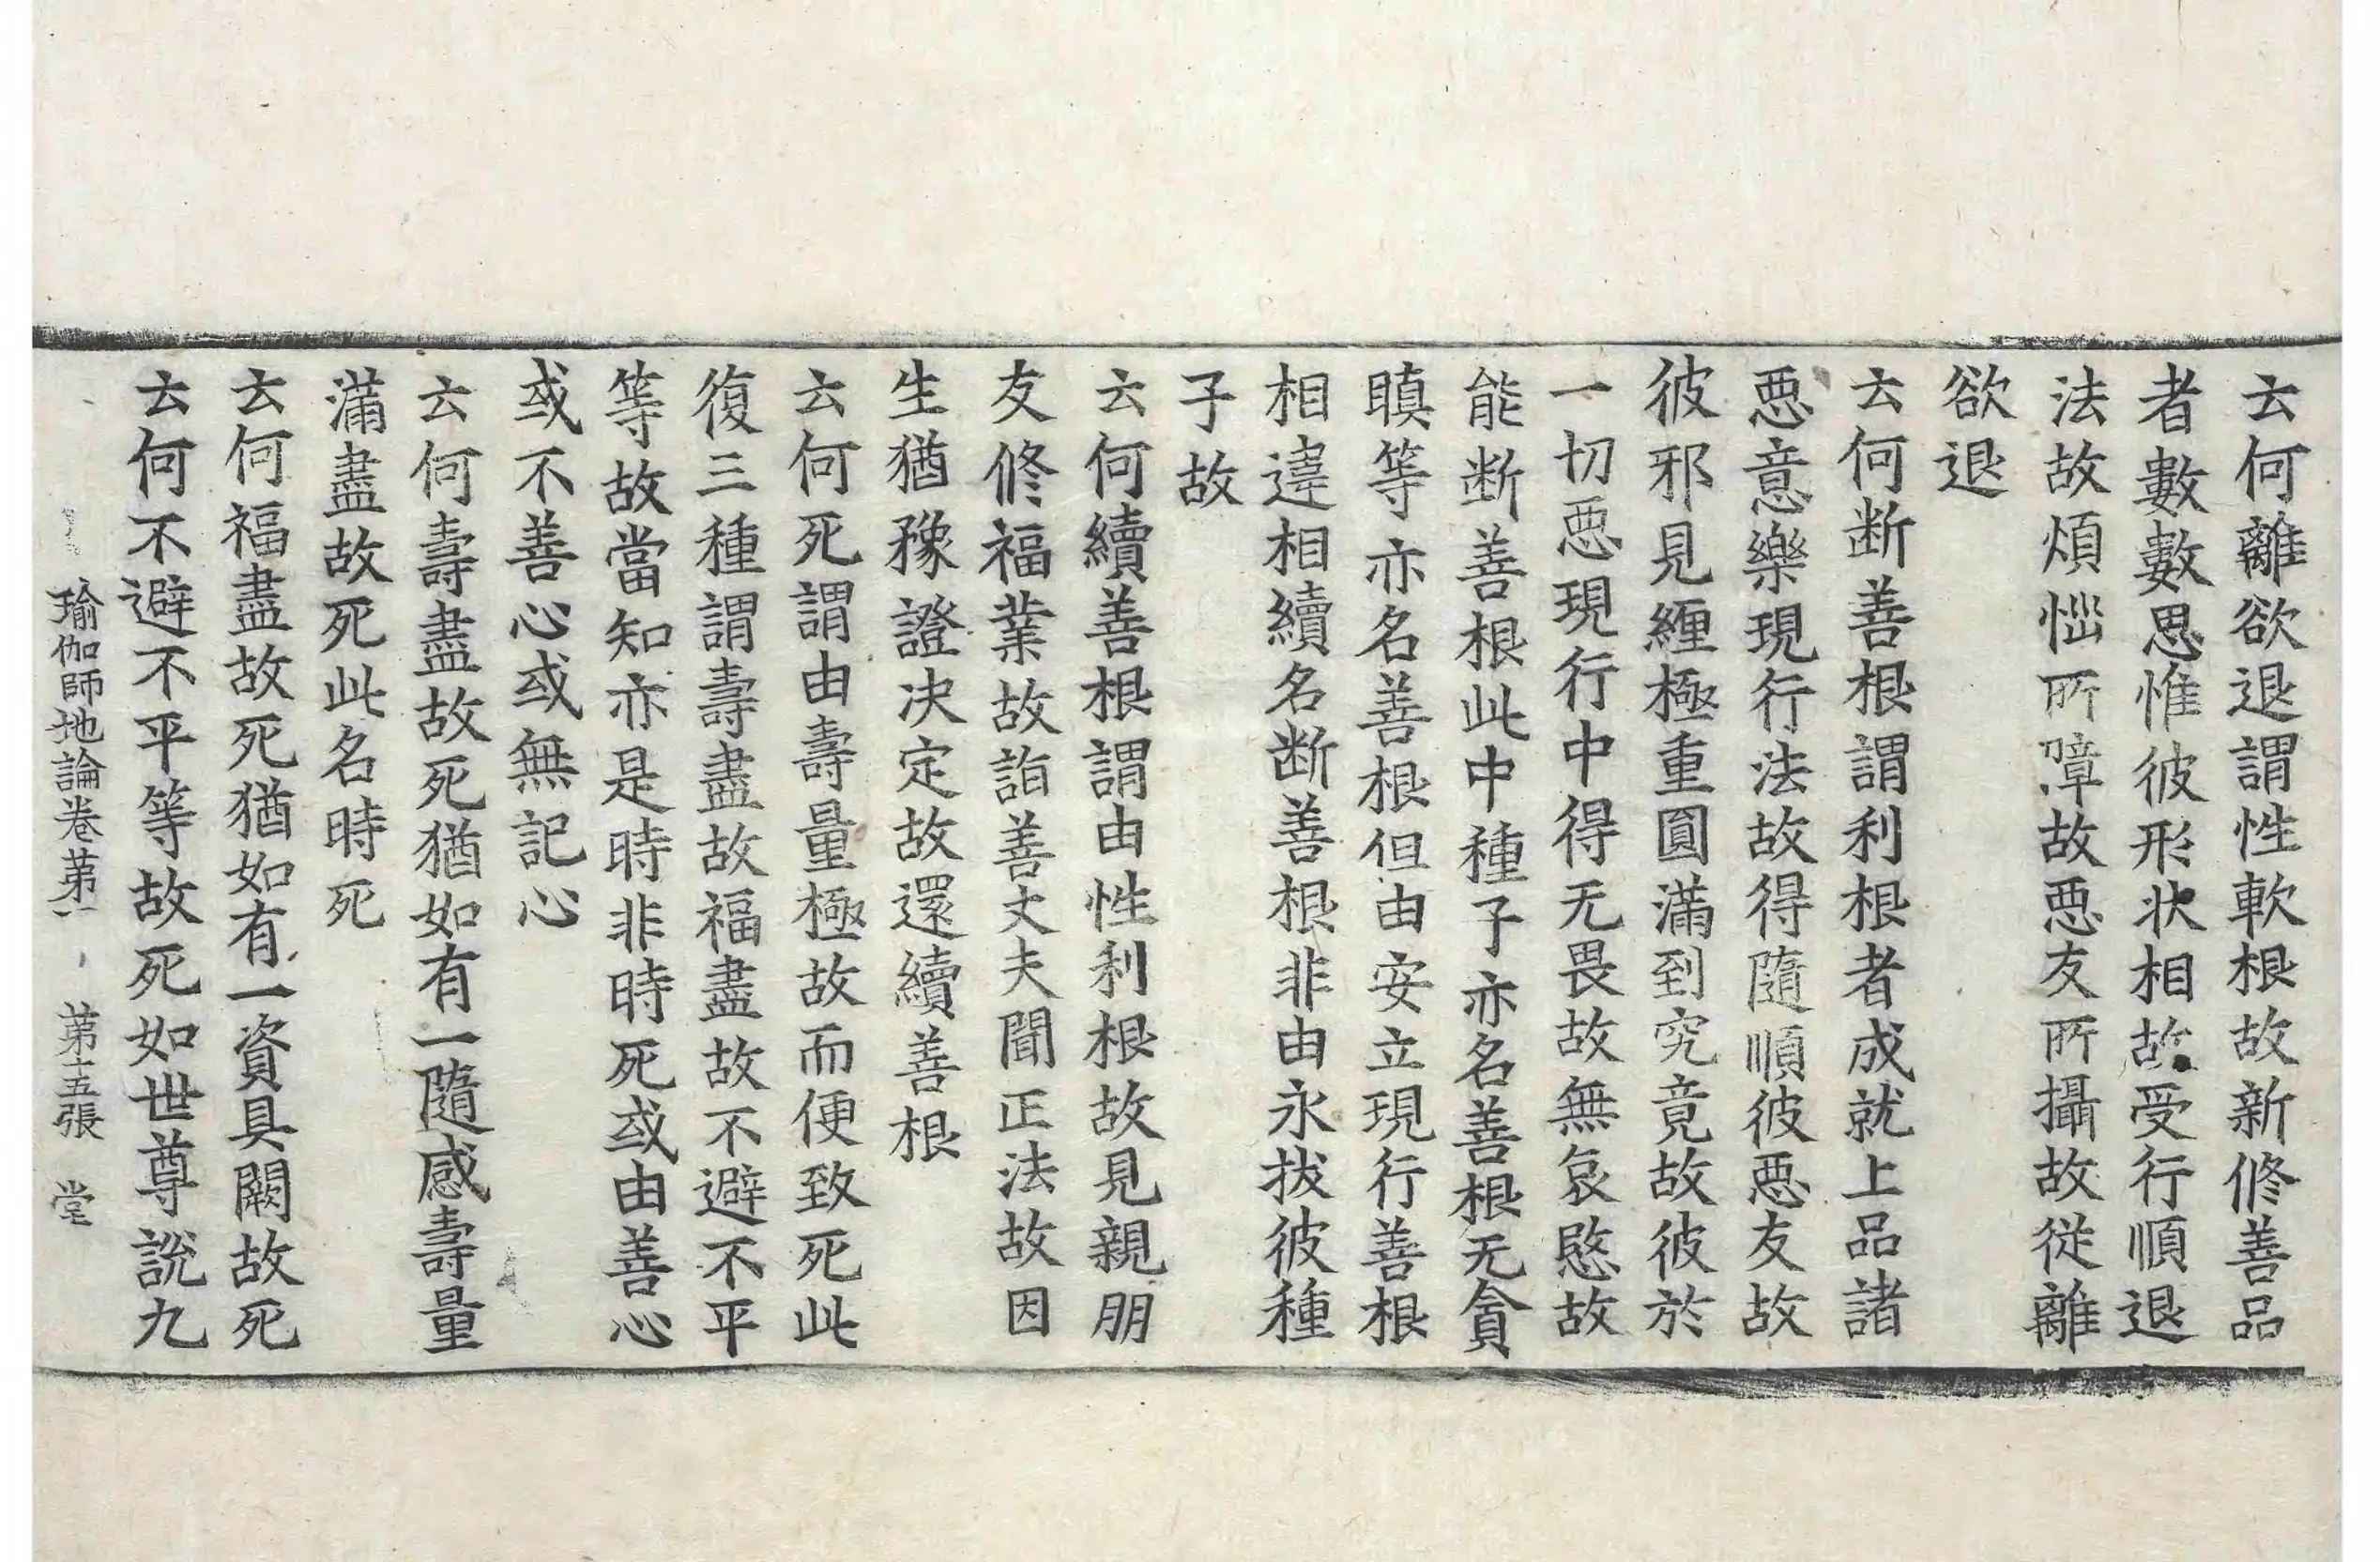 云何離欲退謂性軟根故新修善品
者數數思惟彼形状相故受行順退
法故煩惱所障故恶友所攝故従離
欲退
云何断善根謂利根者成就上品諸
恶意樂現行法故得隨順彼恶友故
彼邪見纏極重圓滿到究竟故彼於
一切恶現行中得无畏故無哀愍故
能断善根此中種子亦名善根无貪
瞋等亦名善根但由安立現行善根
相違相續名断善根非由永拔彼種
子故
云何續善根謂由性利根故見親朋
友修福業故詣善丈夫聞正法故因
生猶豫證决定故還續善根
云何死謂由壽量極故而便致死此
復三種謂壽盡故福盡故不避不平
等故當知亦是時非時死或由善心
或不善心或無記心
云何壽盡故死猶如有一隨感壽量
滿盡故死此名時死
云何福盡故死猶如有一資具闕故死
云何不避不平等故死如世尊說九
瑜伽師地論卷第一 第十五張 堂